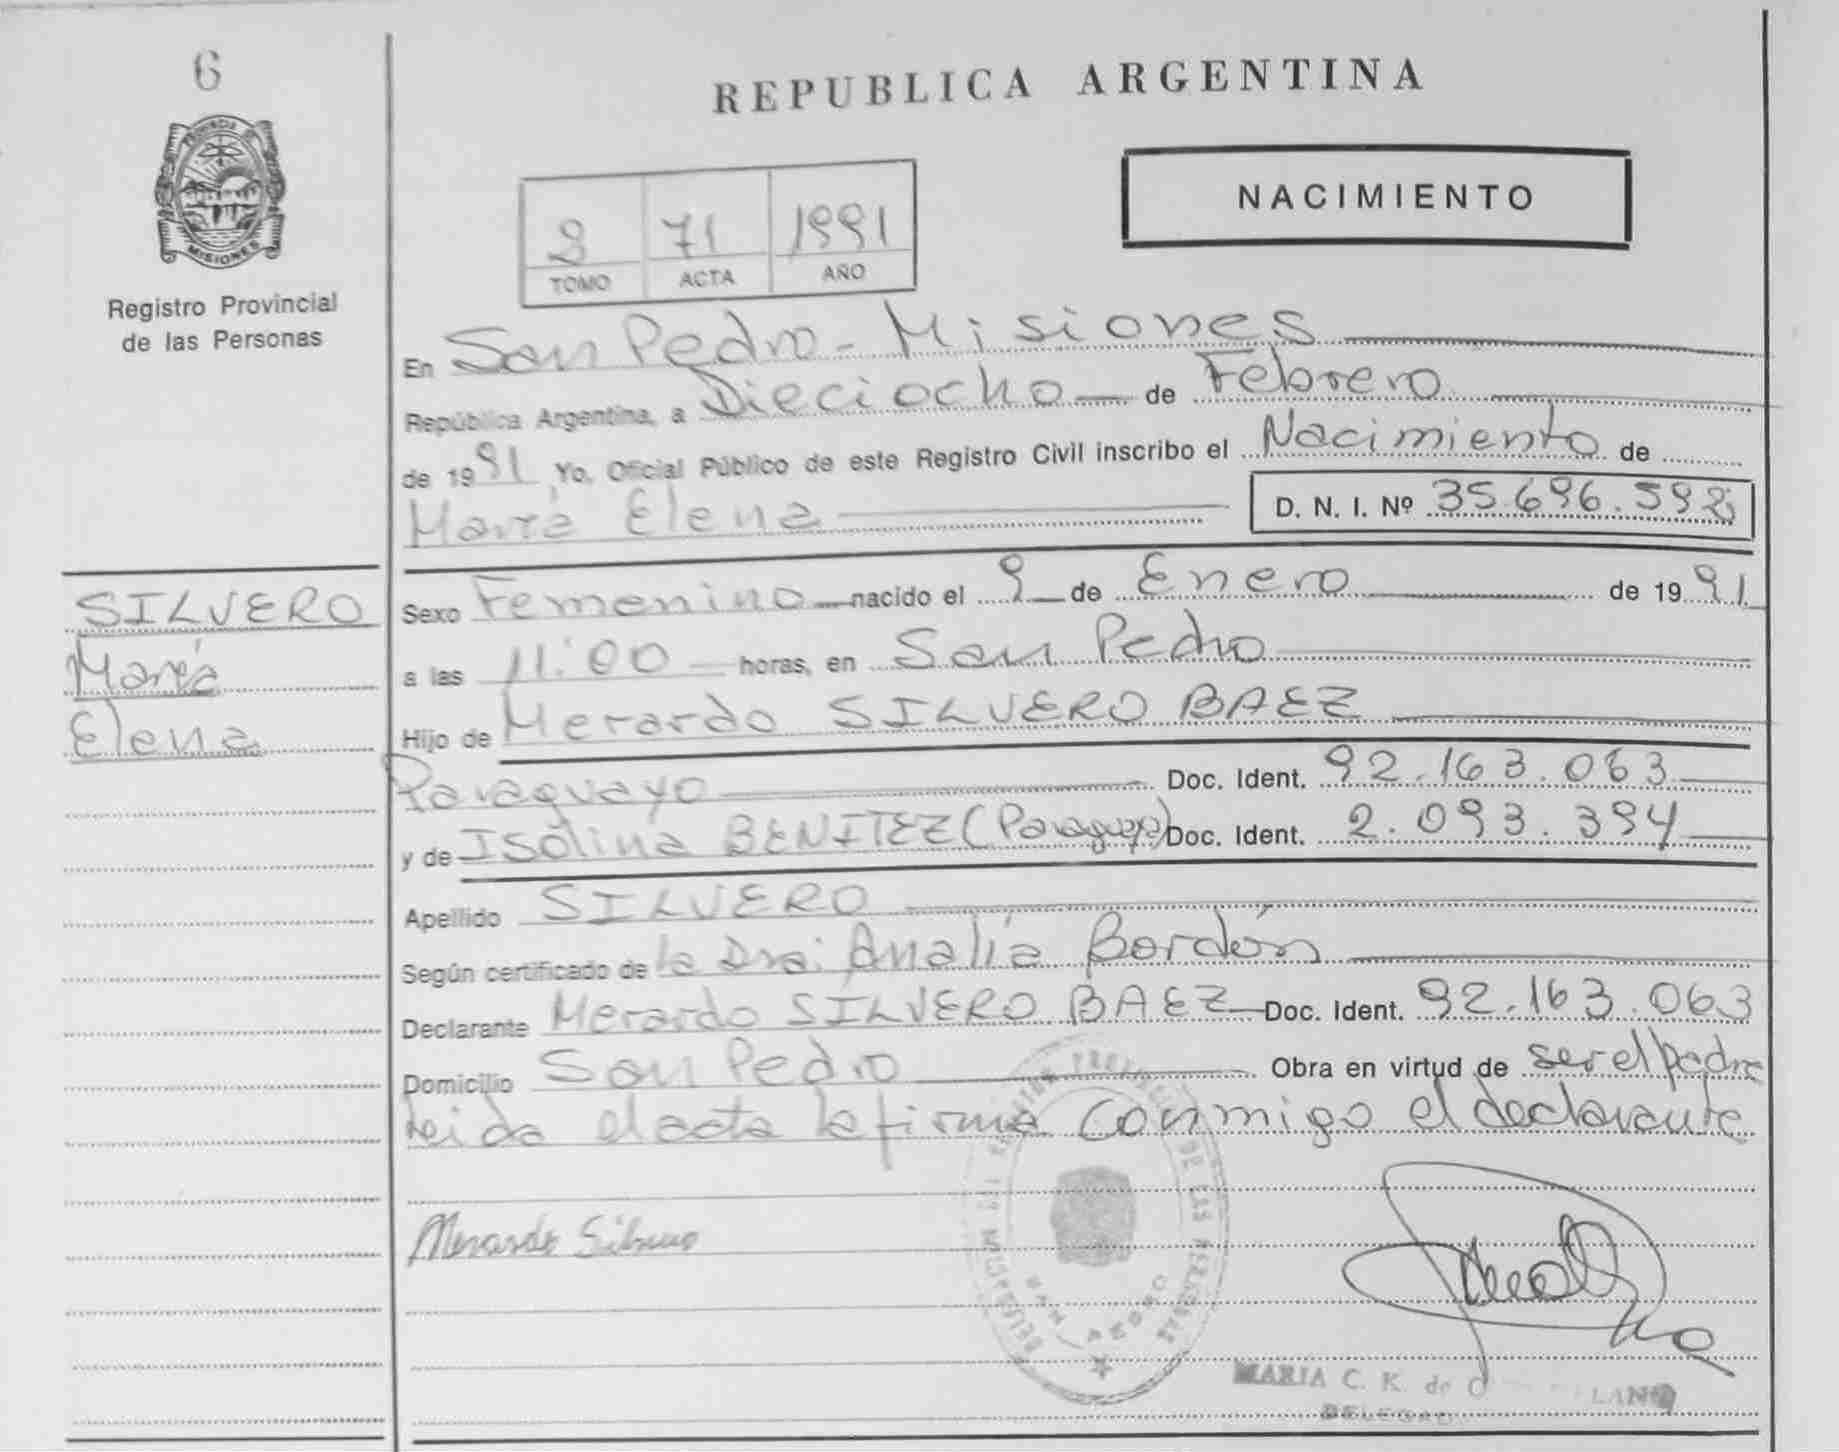 6
PROVINCIA DE
MISIONES
Registro Provincial
de las Personas
SILVERO
María
Elena
REPUBLICA ARGENTINA
NACIMIENTO
2 71 1991
TOMO ACTA AÑO
En San Pedro - Misiones
República Argentina, a Dieciocho de Febrero
de 1991 Yo, Oficial Público de este Registro Civil inscribo el Nacimiento de
María Elena D. N. I. Nº 35.696.592
Sexo Femenino nacido el 9 de Enero de 1991
a las 11:00 horas, en San Pedro
Hijo de Merardo SILVERO BAEZ
Paraguayo Doc. Ident. 92.163.063
y de Isolina BENITEZ (Paraguaya) Doc. Ident. 2.093.394
Apellido SILVERO
Según certificado de la Dra: Analía Bordón
Declarante Merardo SILVERO BAEZ Doc. Ident. 92.163.063
Domicilio San Pedro Obra en virtud de ser el padre
Leida el acta la firma conmigo el declarante
Merardo Silvero
DE LAS PERSONAS
SAN PEDRO
MARIA C. K. de